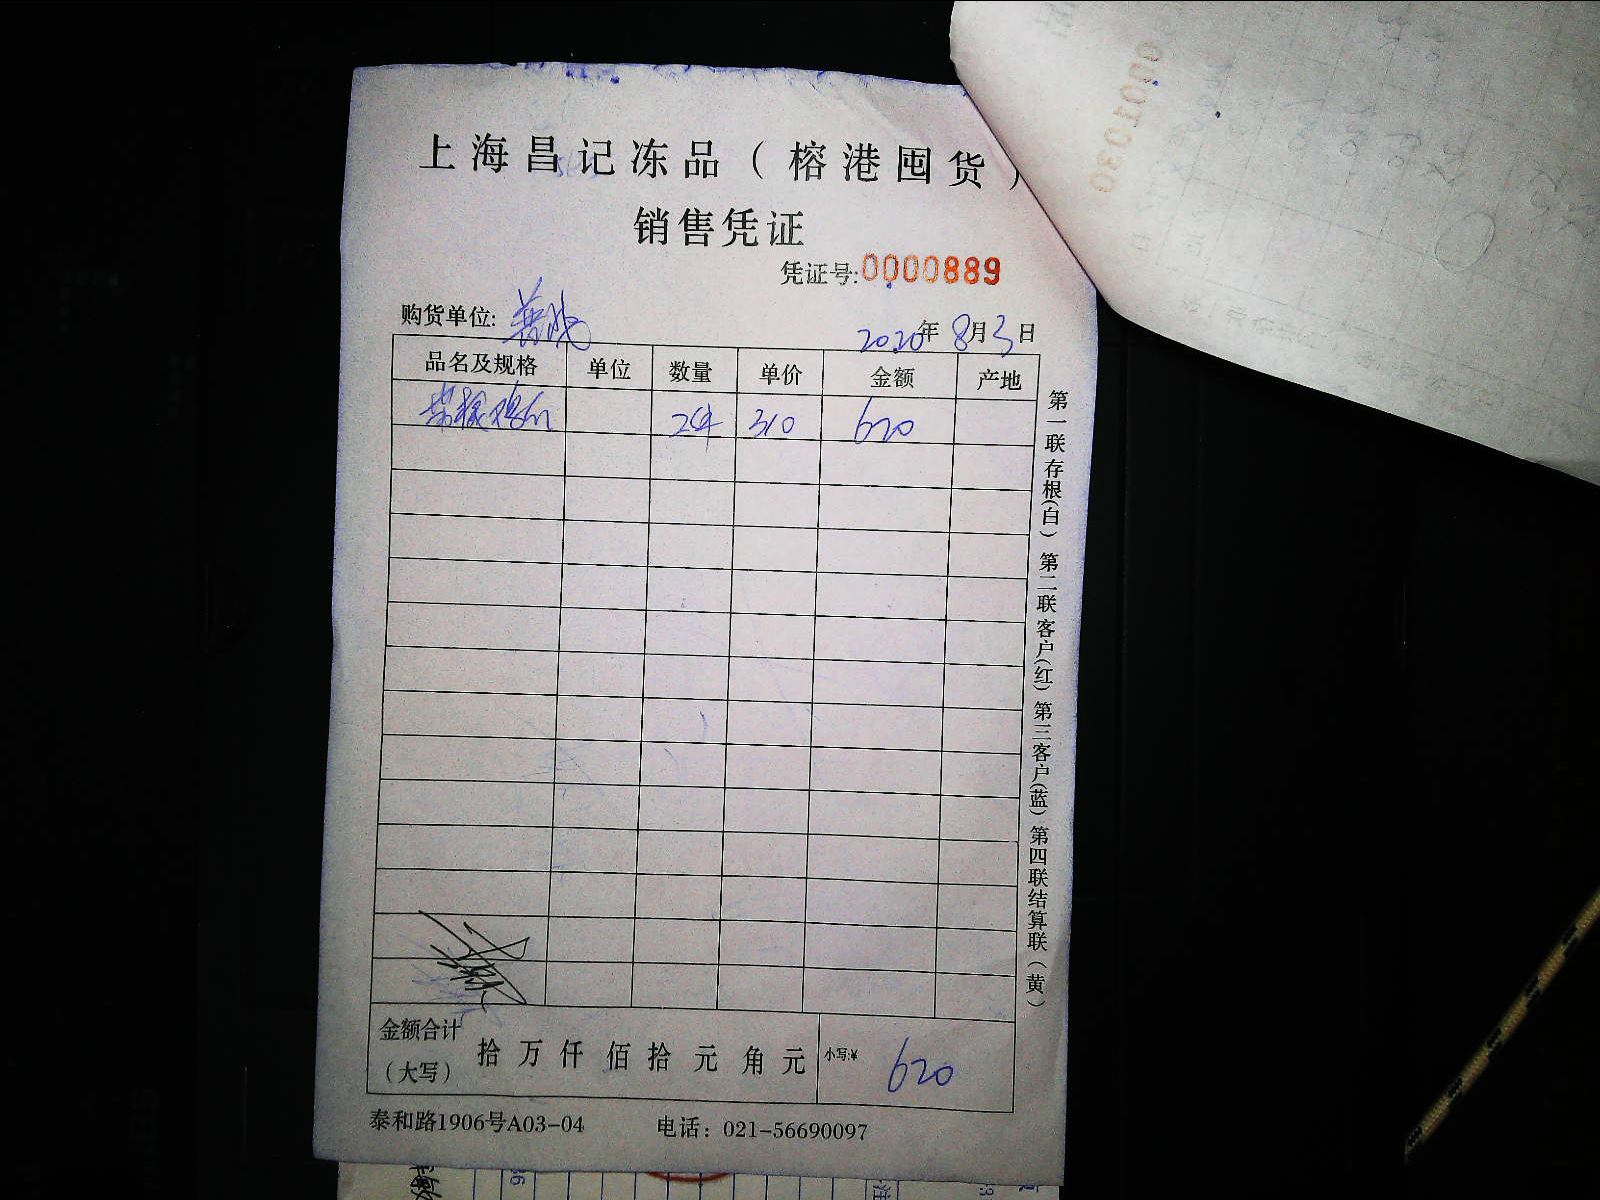 上海昌记冻品（榕港囤货）
销售凭证
凭证号:0000889
购货单位:
2020年 8月3日
品名及规格 单位 数量 单价 金额 产地
2件 310 620
金额合计（大写） 拾 万 仟 佰 拾 元 角 元 小写:¥ 620
泰和路1906号A03-04 电话：021-56690097
第一联存根（白） 第二联客户（红） 第三客户（蓝） 第四联结算联（黄）
0001030